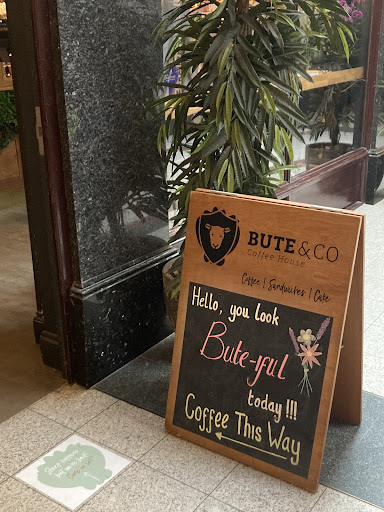 BUTE & CO
Coffee House
Coffee | Sandwiches | Cake
Hello, you look
Bute-iful
today !!!
Coffee This Way